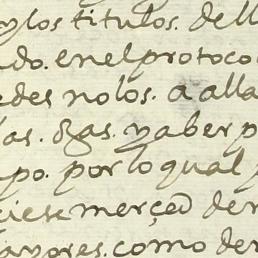 ylos titulos. dell
ado. enelprotoco
edes nolos. a alla
as. yaber p
po. por lo qual
ciese merçed de
ayores. como de